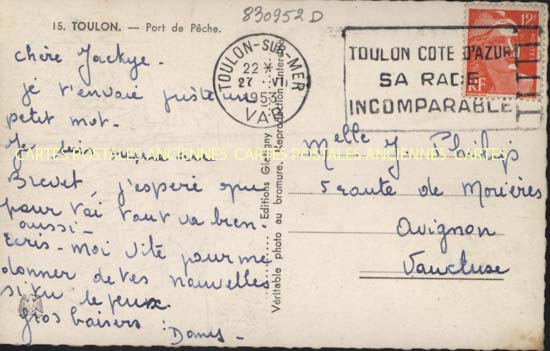 830952 D
15. TOULON. — Port de Pêche.
TOULON-SUR-MER
22 *
27 VI
1953
VAR
TOULON COTE D'AZUR
SA RADE
INCOMPARABLE
12F
RF
chère Jackye.
je t'envoie juste un
petit mot.
Je suis
CARTES POSTALES ANCIENNES CARTES POSTALES ANCIENNES CARTES POSTALES ANCIENNES
Brevet, j'espère que
pour toi tout va bien.
aussi-
Ecris-moi vite pour me
donner de tes nouvelles
si tu le peux
gros baisers
Editions Gletigny
Véritable photo au bromure. Reproduction interdite
Melle J.
5 route de Morières
Avignon
Vaucluse